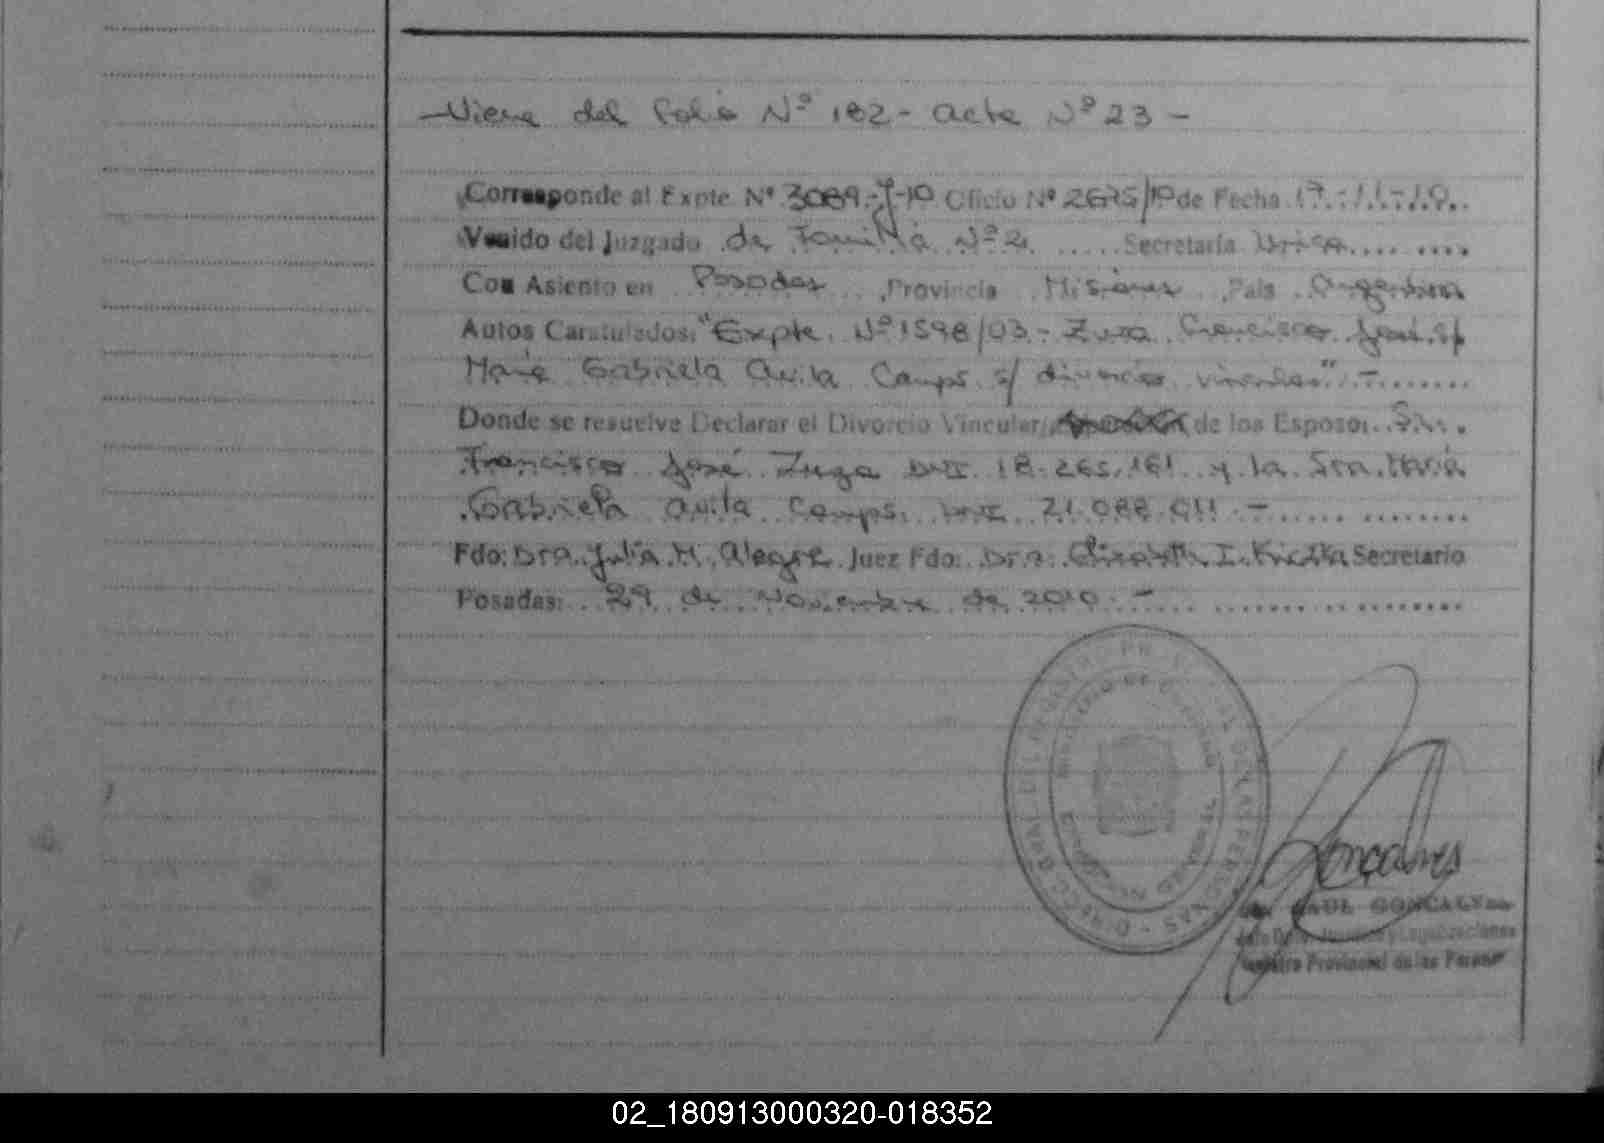 -Viene del folio Nº 182 - acta Nº 23 -
Corresponde al Expte Nº 3089-J-10 Oficio Nº 2675/10 de Fecha 17-11-10
Venido del Juzgado de Familia Nº 2 Secretaría Unica
Con Asiento en Posadas Provincia Misiones País Argentina
Autos Caratulados: "Expte. Nº 1598/03 - Zuza Francisco José c/
María Gabriela Avila Camps s/ divorcio vincular" -
Donde se resuelve Declarar el Divorcio Vincular de los Esposos: Sr.
Francisco José Zuza DNI 18.265.161 y la Sra. María
Gabriela Avila Camps. DNI 21.088.011 -
Fdo: Dra. Julia M. Alegre Juez Fdo: Dra. Elizabeth I. Kiczka Secretario
Posadas: 29 de Noviembre de 2010 -
DIREC. GRAL DEL REGISTRO PROVINCIAL DE LAS PERSONAS
MINISTERIO DE GOBIERNO
Goncalves
RAUL GONCALVES
Registro Provincial de las Personas
02_180913000320-018352